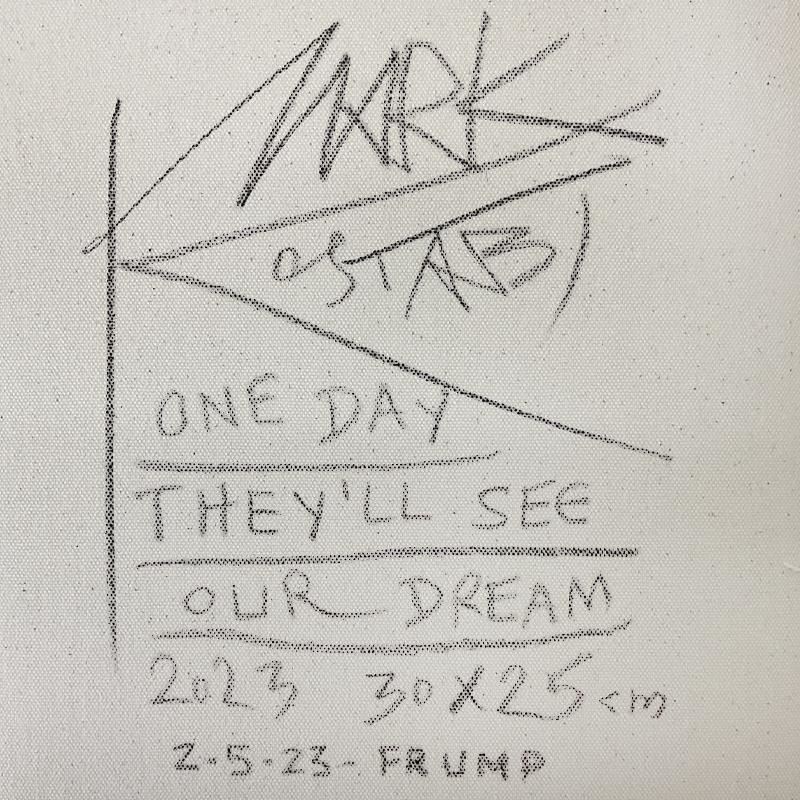 MARK
KOSTABI
ONE DAY
THEY'LL SEE
OUR DREAM
2023 30X25cm
2-5-23-FRUMP